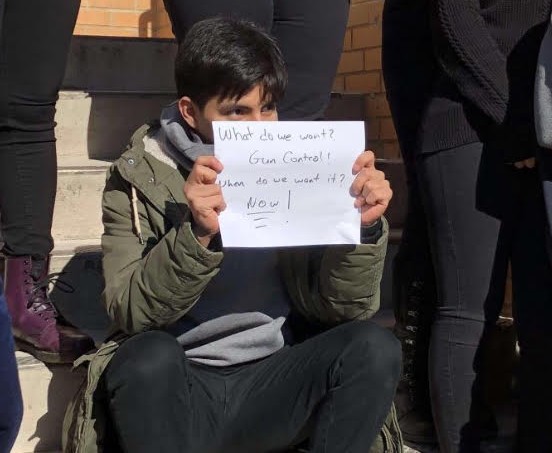 What do we want?
Gun Control!
When do we want it?
Now!